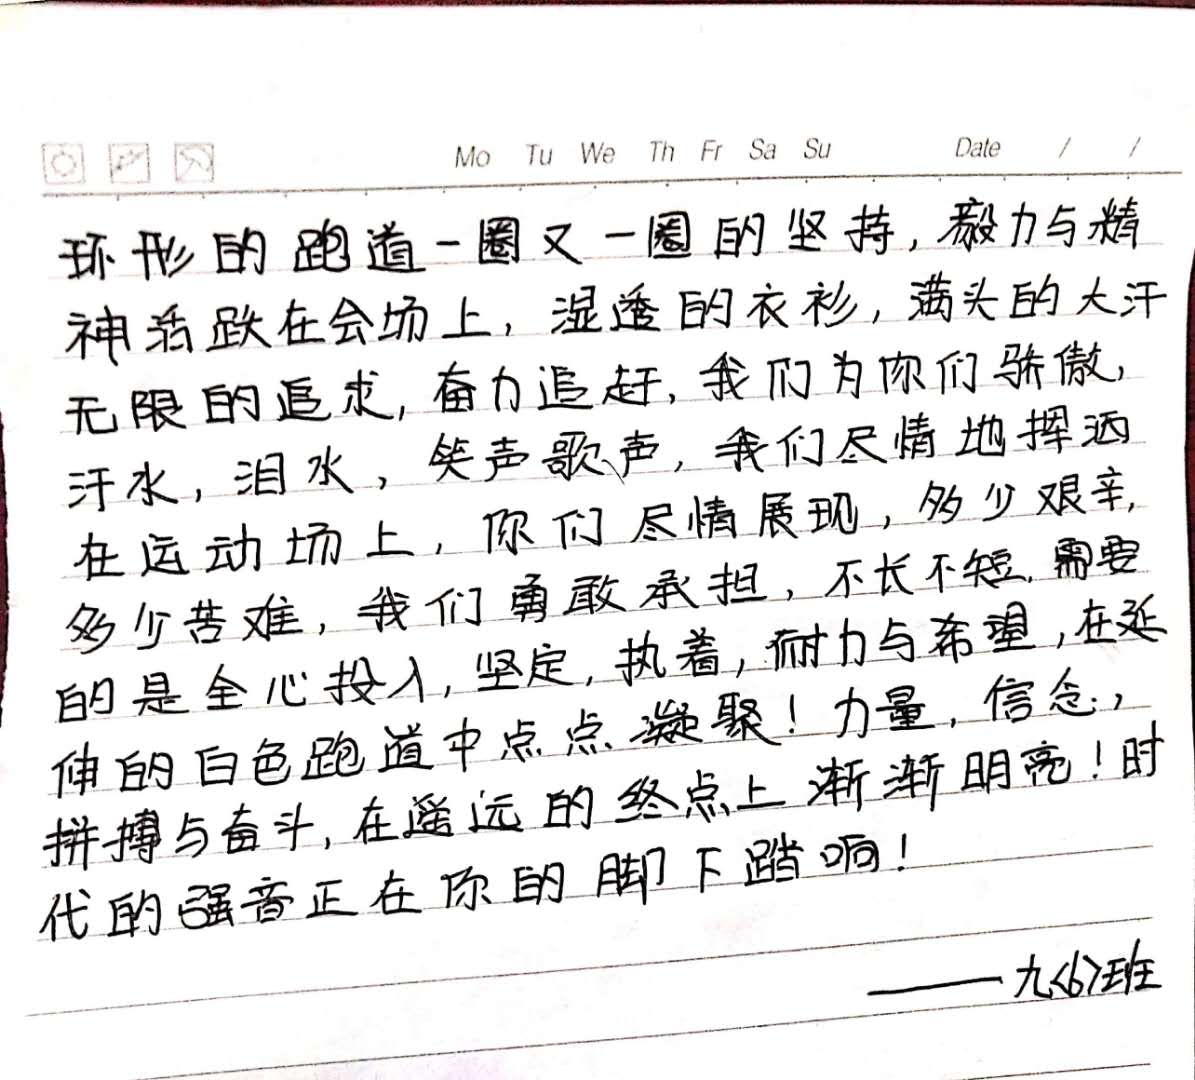 Mo Tu We Th Fr Sa Su Date / /
环形的跑道一圈又一圈的坚持,毅力与精
神活跃在会场上,湿透的衣衫,满头的大汗
无限的追求,奋力追赶,我们为你们骄傲,
汗水,泪水,笑声歌声,我们尽情地挥洒
在运动场上,你们尽情展现,多少艰辛,
多少苦难,我们勇敢承担,不长不短,需要
的是全心投入,坚定,执着,耐力与希望,在延
伸的白色跑道中点点凝聚!力量,信念,
拼搏与奋斗,在遥远的终点上渐渐明亮!时
代的强音正在你的脚下踏响!
——九<6>班